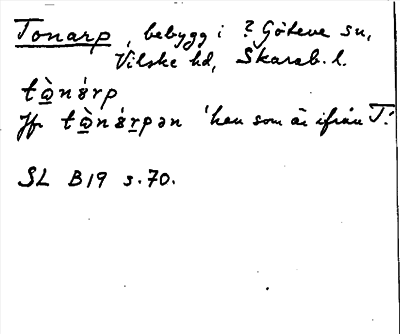 Tonarp, bebygg i ? Göteve sn,
Vilske hd, Skarab. l.
tὰ̱nárp
Jfr tὰ̱ná̱rpən 'han som är ifrån T.'
SL B19 s. 70.